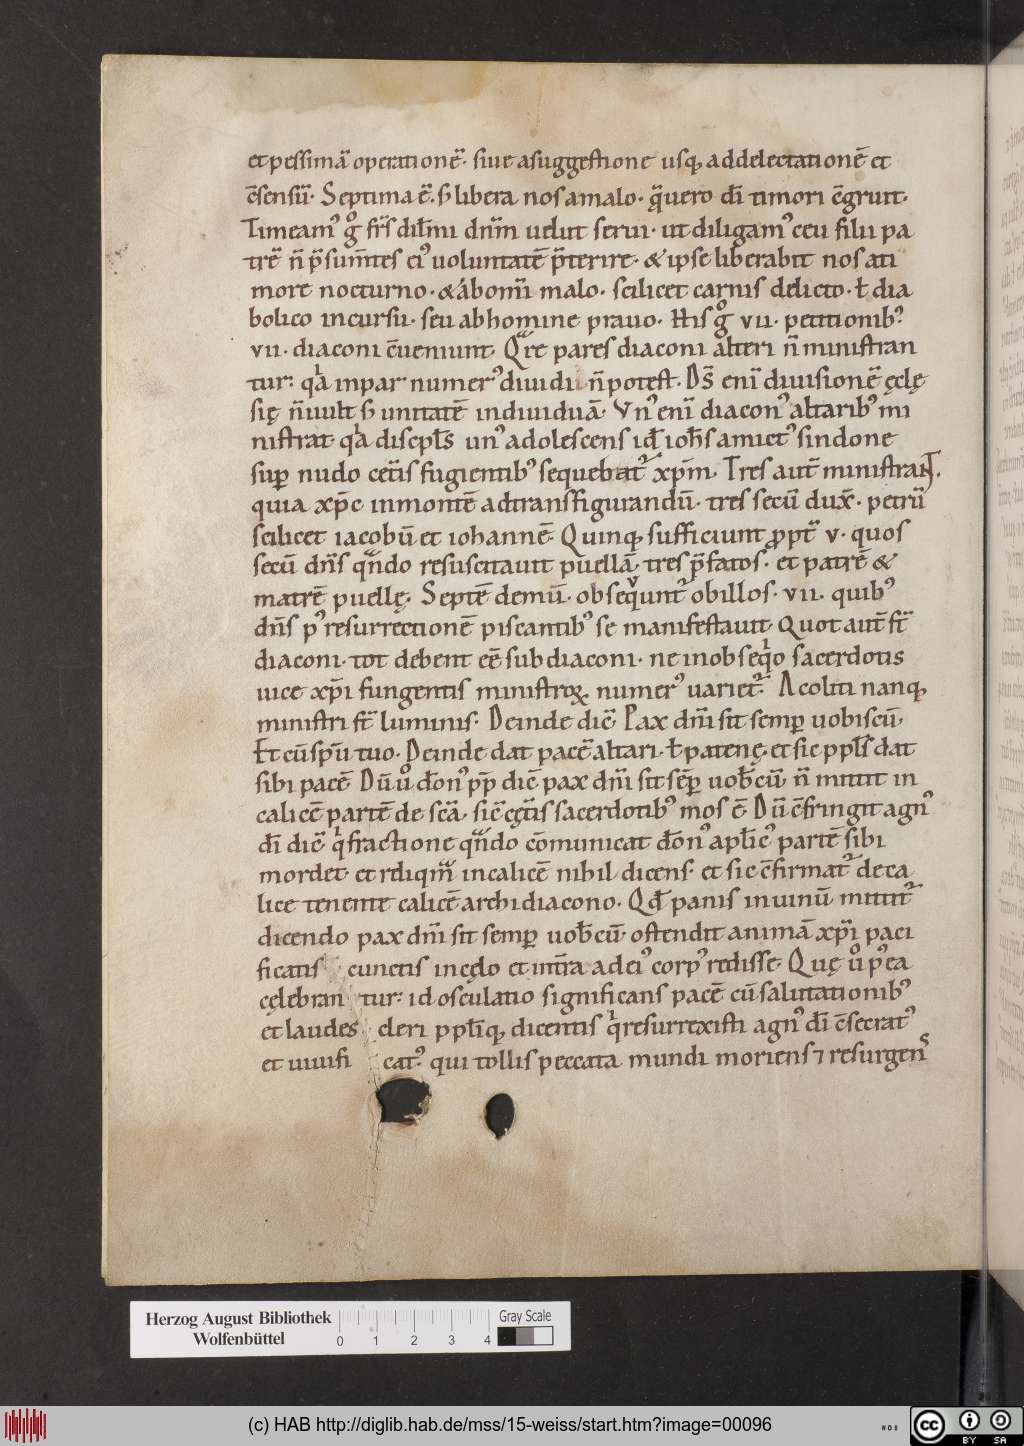 et pessimā operationē. siue asuggestione usq; addelectationē et
c̄sensū. Septima ē. s; libera nos amalo. q̄ uero dī timori c̄gruit.
Timeam' g° frs̄ dil̄mi dnm̄ uelut serui. ut diligam' ceu filii pa
trē n̄ p̄sum̄tes ei' uoluntatē p̄terire. & ipse liberabit nos ati
more nocturno. & abomī malo. scilicet carnis delicto. ł dia
bolico incursu. seu abhomine prauo. His g° vii. petitionib'
vii. diaconi c̄ueniunt. Qͣre pares diaconi alteri n̄ ministran
tur: qͥa inpar numer' diuidi n̄ potest. Ds̄ eni diuisionē ęclę
się n̄ uult s; unitatē indiuiduā. Vn' eni diacon' altarib' mi
nistrat qͥa discipl̄s un' adolescens id̄ ioh̄s amict' sindone
sup nudo cet̄is fugientib' sequebatr xp̄m. Tres aut̄ ministraNT.
quia xp̄c inmontē adtransfigurandū. tres secū dux̄. petrū
scilicet iacobū et iohannē. Quinq; sufficiunt ppt̄ v. quos
secū dn̄s qͣndo resuscitauit puellā. tres p̄fatos. et patrē &
matrē puellę. Septē demū. obsequunt̄ ob illos. vii. quib'
dn̄s p' resurrectionē piscantib' se manifestauit. Quot aut̄ st̄
diaconi. tot debent eē subdiaconi. ne inobseqͥo sacerdotis
uice xp̄i fungentis ministroꝝ numer' uariet̄. Acoliti nanq;
ministri st̄ luminis. Deinde dic̄. Pax dn̄i sit semp uobiscū.
Et cū sp̄u tuo. Deinde dat pacē altari. ł patenę et sic ppl̄s dat
sibi pacē Dū u° don' pp̄ dic̄ pax dn̄i sit sēp uob̄cū. n̄ mittit in
calicē partē de scā. sic̄ cęt̄is sacerdotib' mos ē. Dū c̄fringit agn'
dī dic̄ qͥ fractione qͣndo cōmunicat don' apl̄ic' partē sibi
mordet. et rdiqm̄ incalicē nihil dicens. et sic c̄firmat̄ deca
lice tenente calicē archidiacono. Qd̄ panis in uinū mittit̄
dicendo pax dn̄i sit semp uob̄cū. ostendit animā xp̄i paci
ficatis cunctis incęlo et int̄ra ad ei' corp' redisse. Quę u° p'ea
cęlebran tur: id osculatio significans pacē cū salutationib'
et laudes cleri ppl̄iq; dicentis qͥ resurrexisti agn' dī c̄secrat'
et uiuifi cat'. qui tollis peccata mundi moriens ⁊ resurgens
Herzog August Bibliothek
Wolfenbüttel
0 1 2 3 4
Gray Scale
(c) HAB http://diglib.hab.de/mss/15-weiss/start.htm?image=00096
cc BY SA